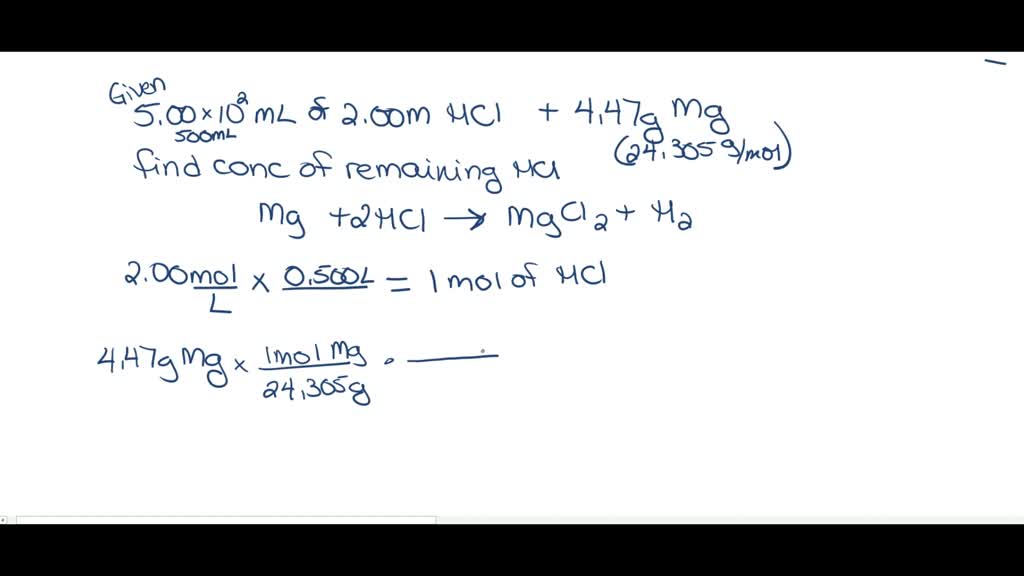 Given
5.00 × 10² mL of 2.00m HCl + 4.47g Mg
500mL
(24.305 g/mol)
find conc of remaining HCl
Mg + 2HCl → MgCl₂ + H₂
2.00mol/L × 0.500L = 1 mol of HCl
4.47g Mg × 1mol Mg/24.305g ·